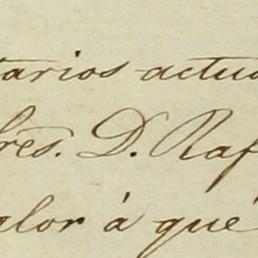 tarios actua
res. D. Raf
alor á qué